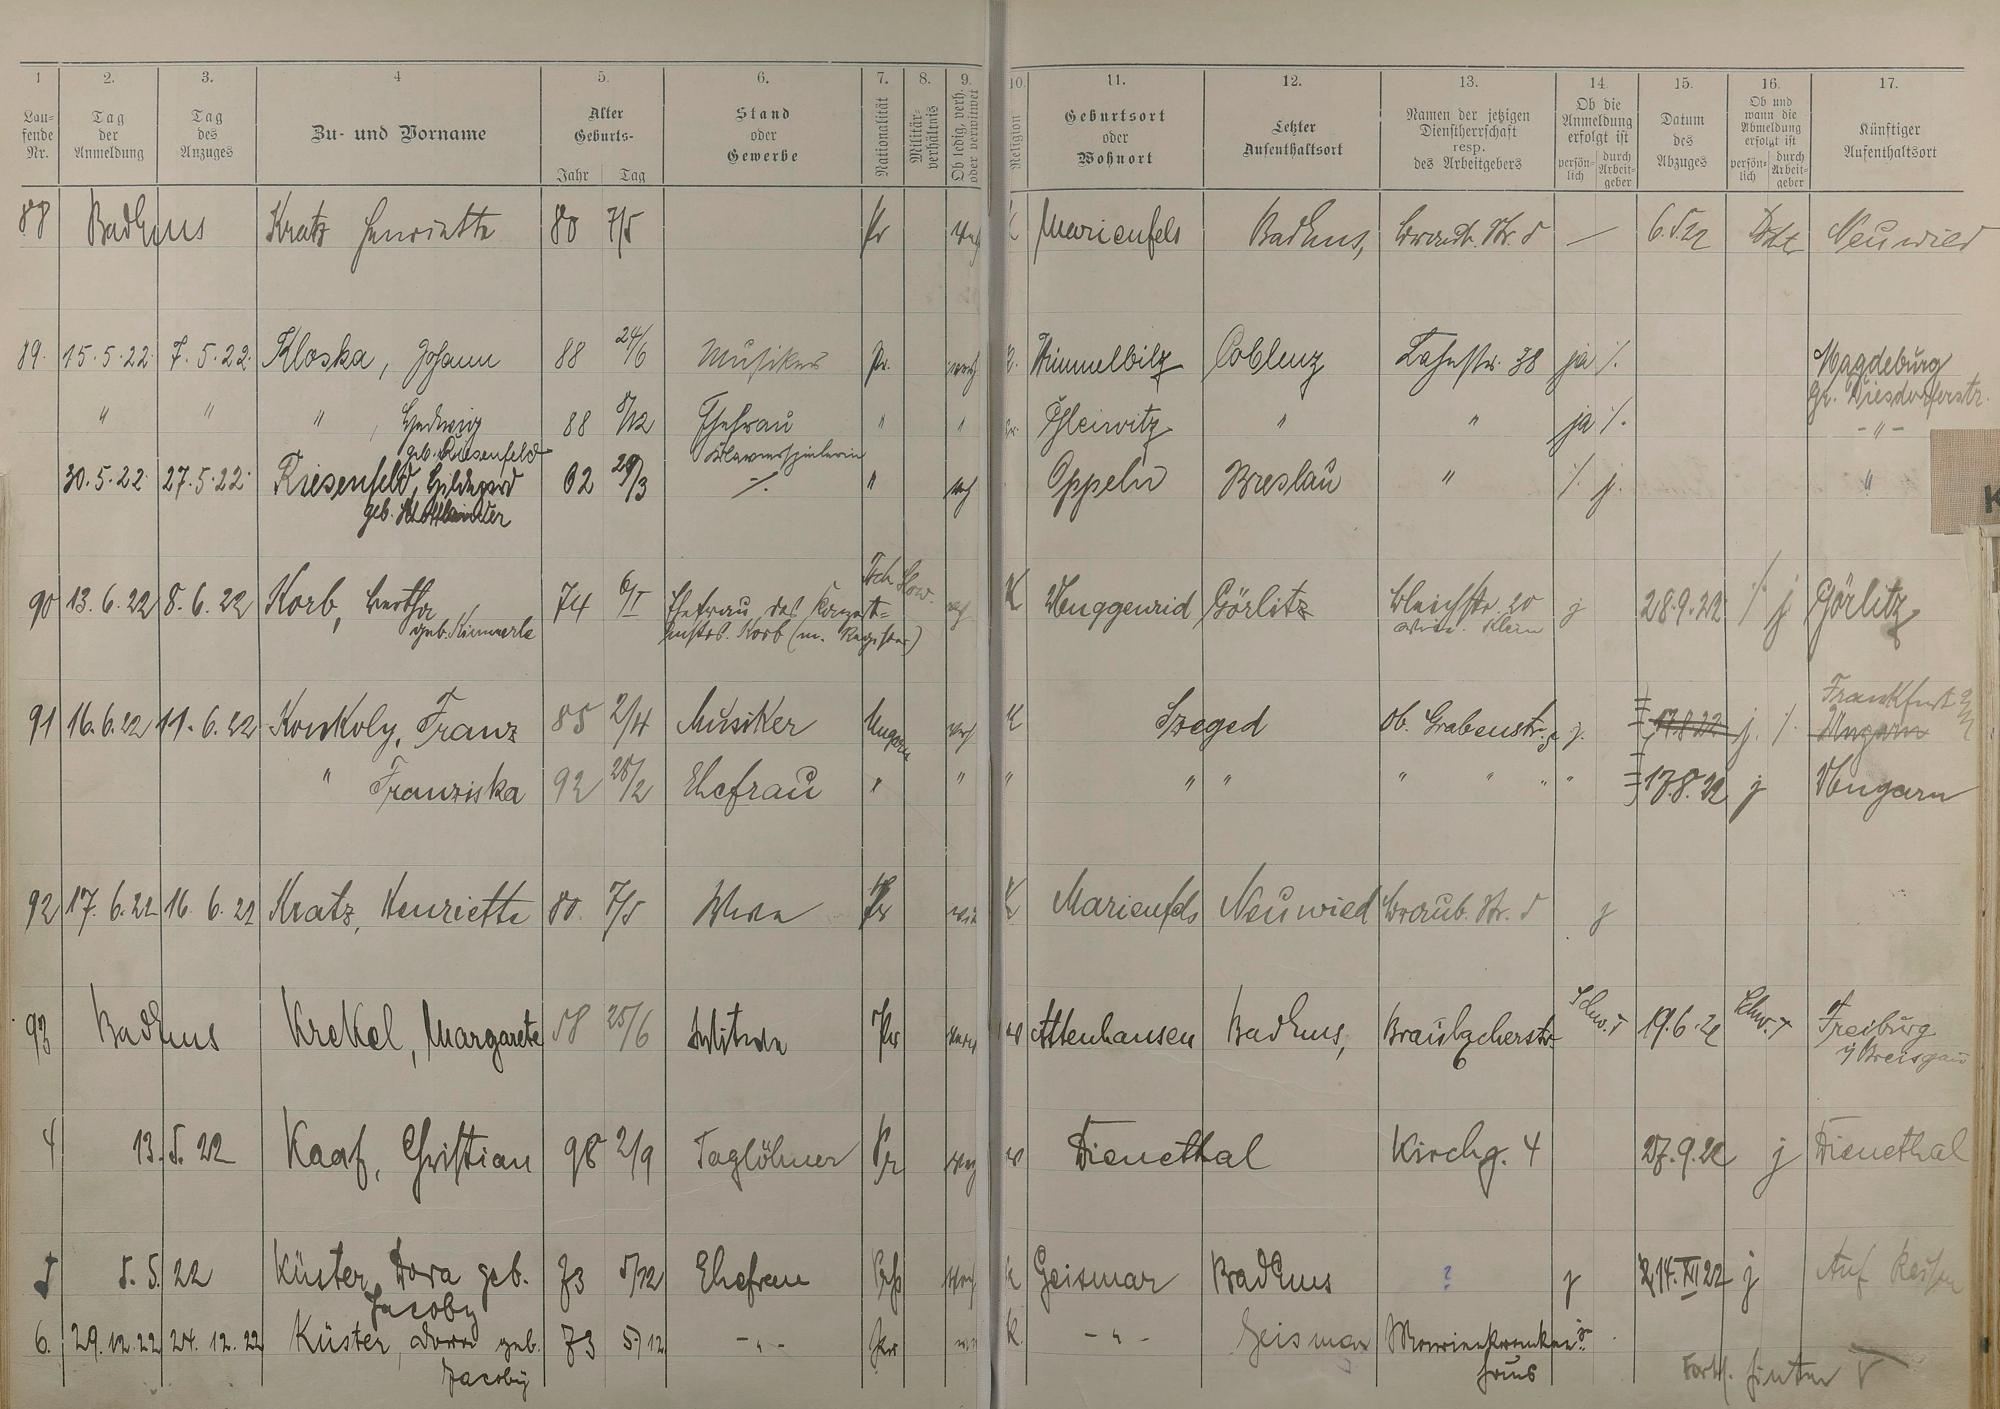 1 2. 3. 4 5. 6. 7. 8. 9. 10. 11. 12. 13. 14. 15. 16. 17.
Lau-
fende
Nr.
Tag
der
Anmeldung
Tag
des
Anzuges
Zu- und Vorname
Alter
Geburts-
Jahr Tag
Stand
oder
Gewerbe
Nationalität
Militär-
verhältnis
Ob ledig, verh.
oder verwitwet
Religion
Geburtsort
oder
Wohnort
Letzter
Aufenthaltsort
Namen der jetzigen
Dienstherrschaft
resp.
des Arbeitgebers
Ob die
Anmeldung
erfolgt ist
persön-
lich
durch
Arbeit-
geber
Datum
des
Abzuges
Ob und
wann die
Abmeldung
erfolgt ist
persön-
lich
durch
Arbeit-
geber
Künftiger
Aufenthaltsort
88 Bad Ems Kratz Henriette 80 7/5 Pr K Marienfels Bad Ems, Str. 5 — 6.5.22 Neuwied
89. 15.5.22. 7.5.22. Kloska, Johann 88 24/6 Musiker Pr. verh Himmelwitz Coblenz Lahnstr. 38 ja /. Magdeburg
Gr. Diesdorferstr.
" " " , Hedwig 88 8/12 Ehefrau " " Gleiwitz " " ja /. - " -
geb. Riesenfeld Klavierspielerin
30.5.22. 27.5.22. Riesenfeld, Hildegard 02 29/3 /. " verh Oppeln Breslau " /. j. "
geb.
Tsch. Slow.
90 13.6.22 8.6.22 Korb, Bertha 74 6/I Ehefrau des K Görlitz Bleichstr. 20 j 28.9.22 /. j. Görlitz
geb. Kimmerle Korb (m. Register) Klein
Frankfurt
91 16.6.22 11.6.22 Konkoly, Franz 85 2/4 Musiker Ungarn verh K Szeged Ob. Grabenstr. j. 17.8.22 j. /. Ungarn
" Franziska 92 28/2 Ehefrau " " " " " " " " " 17.8.22 j Ungarn
92 17.6.22 16.6.22 Kratz, Henriette 80. 7/5 Wwe Pr K Marienfels Neuwied Braub. Str. 5 j
93 Bad Ems Krekel, Margarete 58 25/6 Witwe Pr Attenhausen Bad Ems, Braubacherstr. 19.6.22 Freiburg
6 i/Breisgau
4 13.5.22 Kaaf, Christian 98 2/9 Taglöhner Pr Dienethal Kirchg. 4 27.9.22 j Dienethal
5 5.5.22 Küster, Dora geb. 73 5/12 Ehefrau k Geismar Bad Ems ? j 14.XII 22 j Auf Reisen
Jacoby
6. 29.12.22 24.12.22 Küster, Dora geb. 73 5/12 - " - Pr K. - " - Geismar Marienkranken-
Jacoby haus Forts. hinten